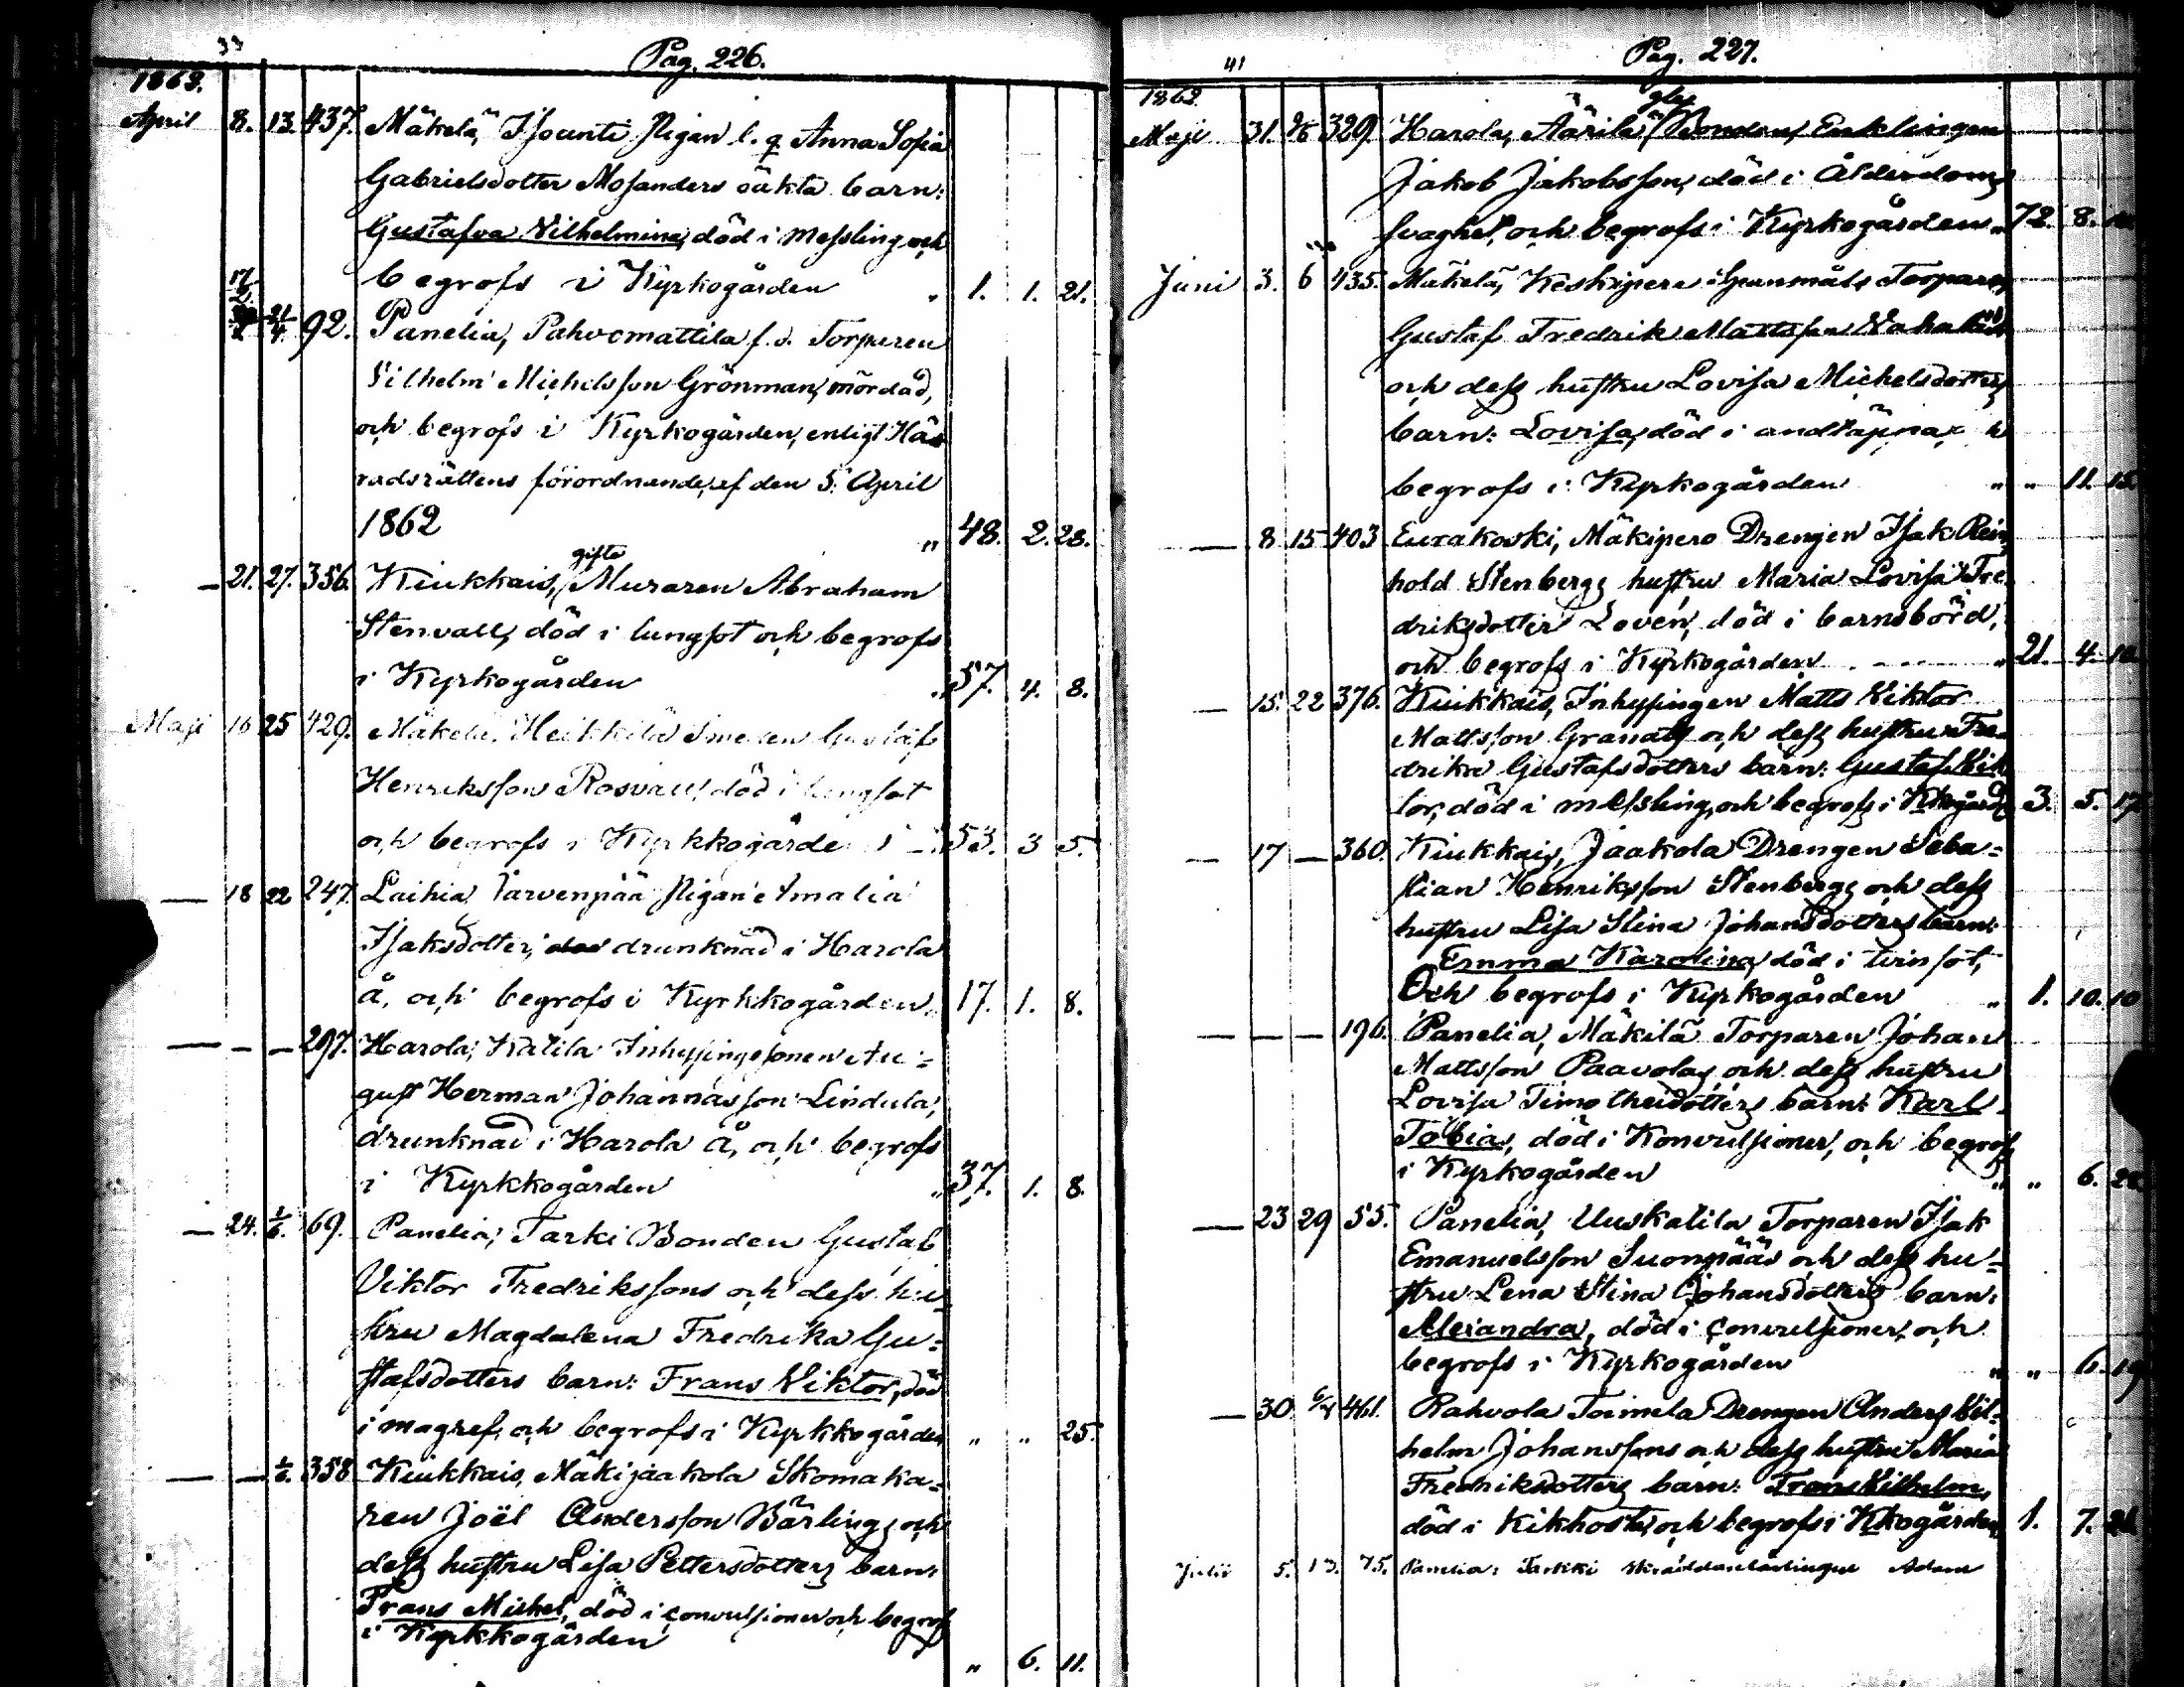 33
Pag. 226.
1862.
April 8. 13. 437. Mäkelä, Isoanti Pigan l. q. Anna Sofia
Gabrielsdotter Mosanders oäkta barn:
Gustafva Vilhelmina, död i messling och
begrofs i Kyrkogården " 1. 1. 21.
21/4 92. Panelia, Pahvomattila f. d. Torparen
Vilhelm Michelsson Grönman, mördad,
och begrofs i Kyrkogården, enligt Hä
radsrättens förordnande, af den 5. April
1862 " 48. 2. 28.
gifte
— 21. 27. 356. Kiukkais, Muraren Abraham
Stenvall, död i lungsot och begrofs
i Kyrkogården " 57. 4. 8.
Maji 16 25 429. Mäkelä, Heikkilä Smeden Gustaf
Henriksson Rosvall, död i lungsot
och begrofs i Kyrkkogården 53. 3 5.
— 18 22 247. Laihia, Jarvenpää Pigan Amalia
Isaksdotter, drunknad i Harola
å, och begrofs i Kyrkkogården. 17. 1. 8.
— — — 297. Harola, Katila Inhysingesonen Au=
gust Herman Johannasson Lindula,
drunknad i Harola å, och begrofs
i Kyrkkogården " 37. 1. 8.
— 24. 1/6. 69. Panelia, Tarki Bonden Gustaf
Viktor Fredrikssons och dess hu
stru Magdalena Fredrika Gu=
stafsdotters barn: Frans Viktor, död
i magref, och begrofs i Kyrkkogården " " 25.
— — 1/6. 358 Kiukkais, Mäkijaakola Skomaka=
ren Joël Andersson Bärlings och
dess hustru Lisa Pettersdotters barn:
Frans Michel, död i convulsioner och begrofs
i Kyrkkogården
" 6. 11.
41
Pag. 227.
1862
Maji 31. 9/6 329. Harola, Äärilä Bonden, Enklingen
Jakob Jakobsson, död i Ålderdoms
svaghet, och begrofs i Kyrkogården " 72. 8.
Juni 3. 6 435. Mäkelä, Keskipere Spanmåls Torparen
Gustaf Fredrik Mattsson
och dess hustru Lovisa Michelsdotters
barn: Lovisa, död i andtäppa,
begrofs i Kyrkogården " " 11. 15.
— 8 15 403 Eurakoski, Mäkipero Drengen Isak Rein
hold Stenbergs hustru Maria Lovisa Fre
driksdotter Lovén, död i barnsbörd,
och begrofs i Kyrkogården " 21. 4. 10
— 15. 22 376. Kiukkais, Inhysingen Matts Viktor
Mattsson Granats och dess hustru Fre
drika Gustafsdotters barn: Gustaf Vik
tor, död i messling, och begrofs i Kkogården 3. 5. 17
— 17 — 360. Kiukkais, Jaakola Drengen Seba=
stian Henriksson Stenbergs och dess
hustru Lisa Stina Johansdotters barn:
Emma Karolina, död i tvinsot,
Och begrofs i Kyrkogården " 1. 10. 10
— — — 196. Panelia, Mäkilä Torparen Johan
Mattsson Paavolas och dess hustru
Lovisa Timotheidotters barn: Karl
Tobias, död i Konvulsioner, och begrofs
i Kyrkogården " " 6.
— 23 29 55. Panelia, Uuskatila Torparen Isak
Emanuelsson Suonpääs och dess hu=
stru Lena Stina Johansdotters barn:
Alexandra, död i convulsioner, och
begrofs i Kyrkogården " " 6. 19
— 30. 461. Rahvola Toimela Drengen Anders Vil=
helm Johanssons och dess hustru Maria
Fredriksdotters barn: Frans Vilhelm,
död i Kikhosta, och begrofs i Kkogården 1. 7.
Julii 5. 13. 75. Panelia, Tarkki Skräddarelärlingen Adam